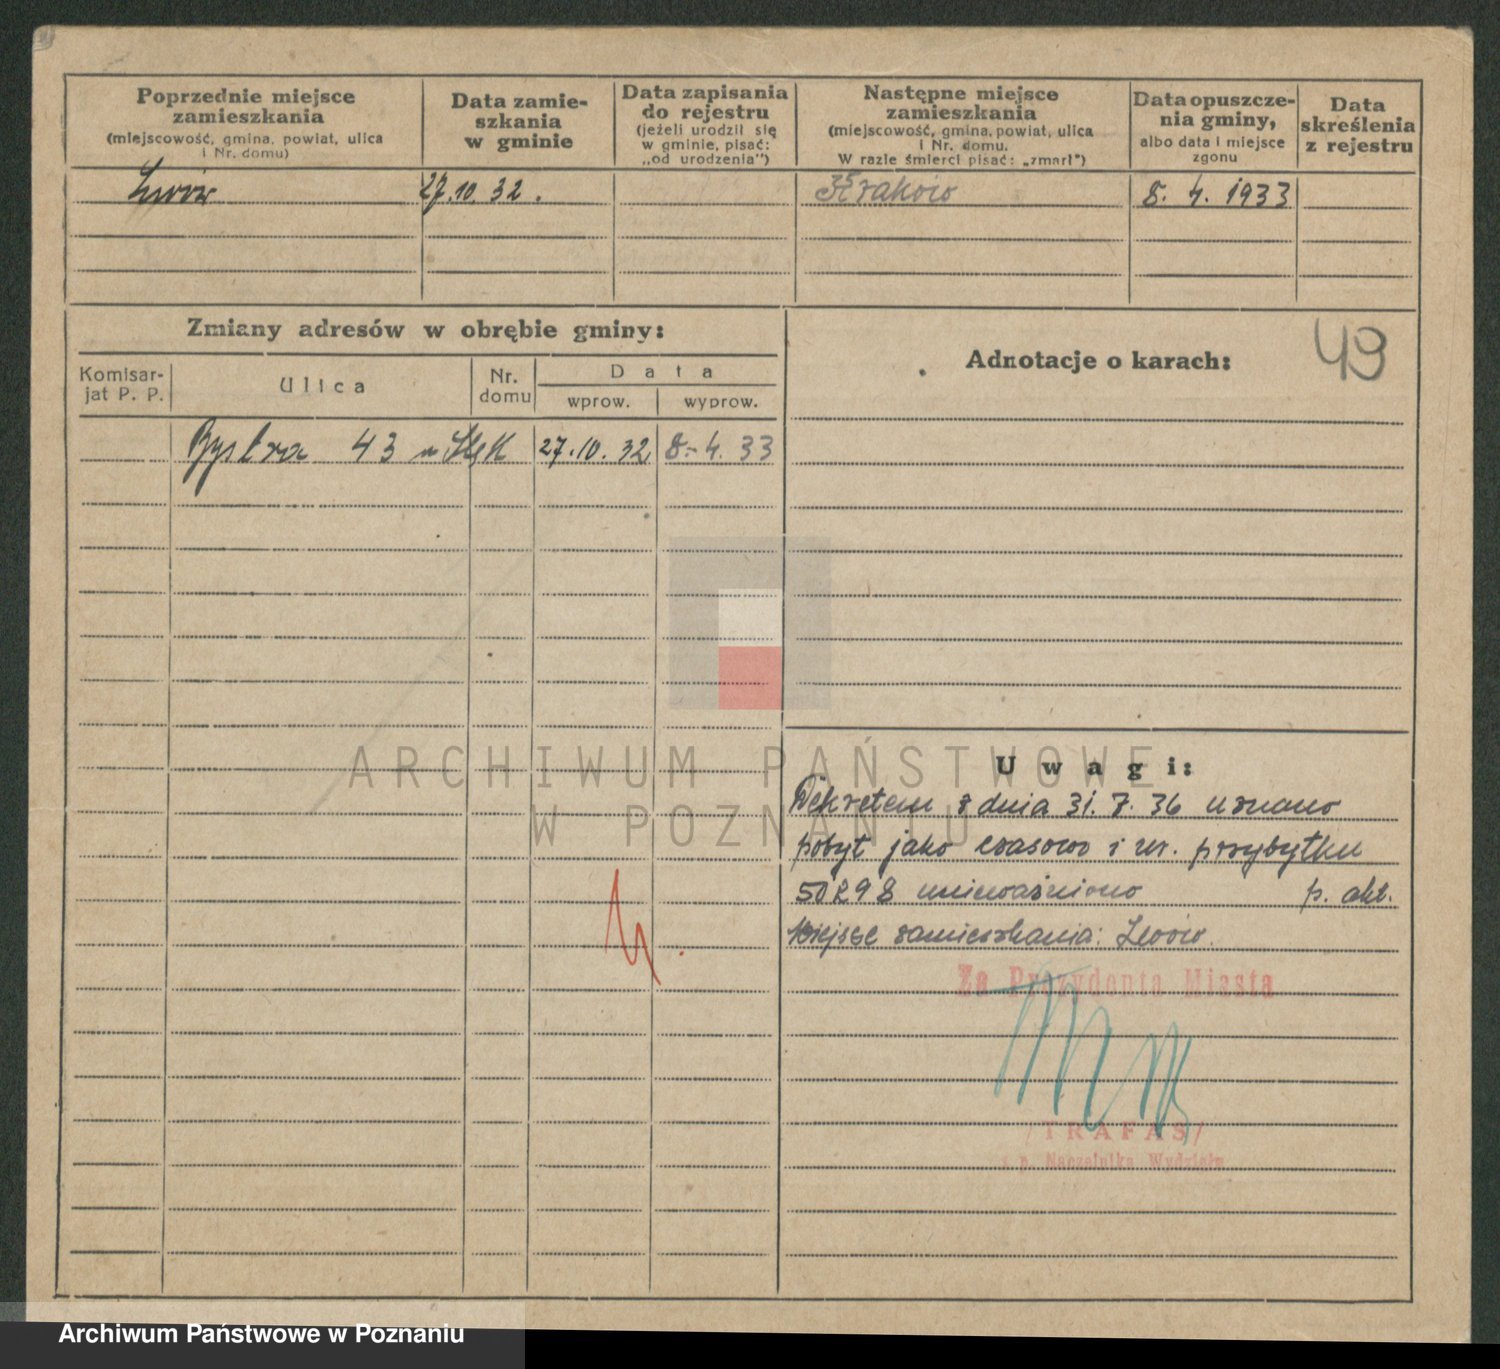 Poprzednie miejsce
zamieszkania
(miejscowość, gmina, powiat, ulica
i Nr. domu)
Data zamie-
szkania
w gminie
Data zapisania
do rejestru
(jeżeli urodził się
w gminie, pisać:
„od urodzenia")
Następne miejsce
zamieszkania
(miejscowość, gmina, powiat, ulica
i Nr. domu.
W razie śmierci pisać: „zmarł")
Data opuszcze-
nia gminy,
albo data i miejsce
zgonu
Data
skreślenia
z rejestru
Lwów
27.10.32.
Kraków
8. 4. 1933
Zmiany adresów w obrębie gminy:
Komisar-
jat P. P.
Ulica
Nr.
domu
Data
wprow.
wyprow.
Bystra 43
27.10.32
8.-4.33
Adnotacje o karach:
49
Uwagi:
Dekretem z dnia 31.7.36 uznano
pobyt jako czasowo i nr. przybytku
50298 unieważniono p. akt.
Miejsce zamieszkania: Lwów.
Za Prezydenta Miasta
/TRAFAS/
Naczelnika Wydziału
ARCHIWUM PAŃSTWOWE
W POZNANIU
Archiwum Państwowe w Poznaniu